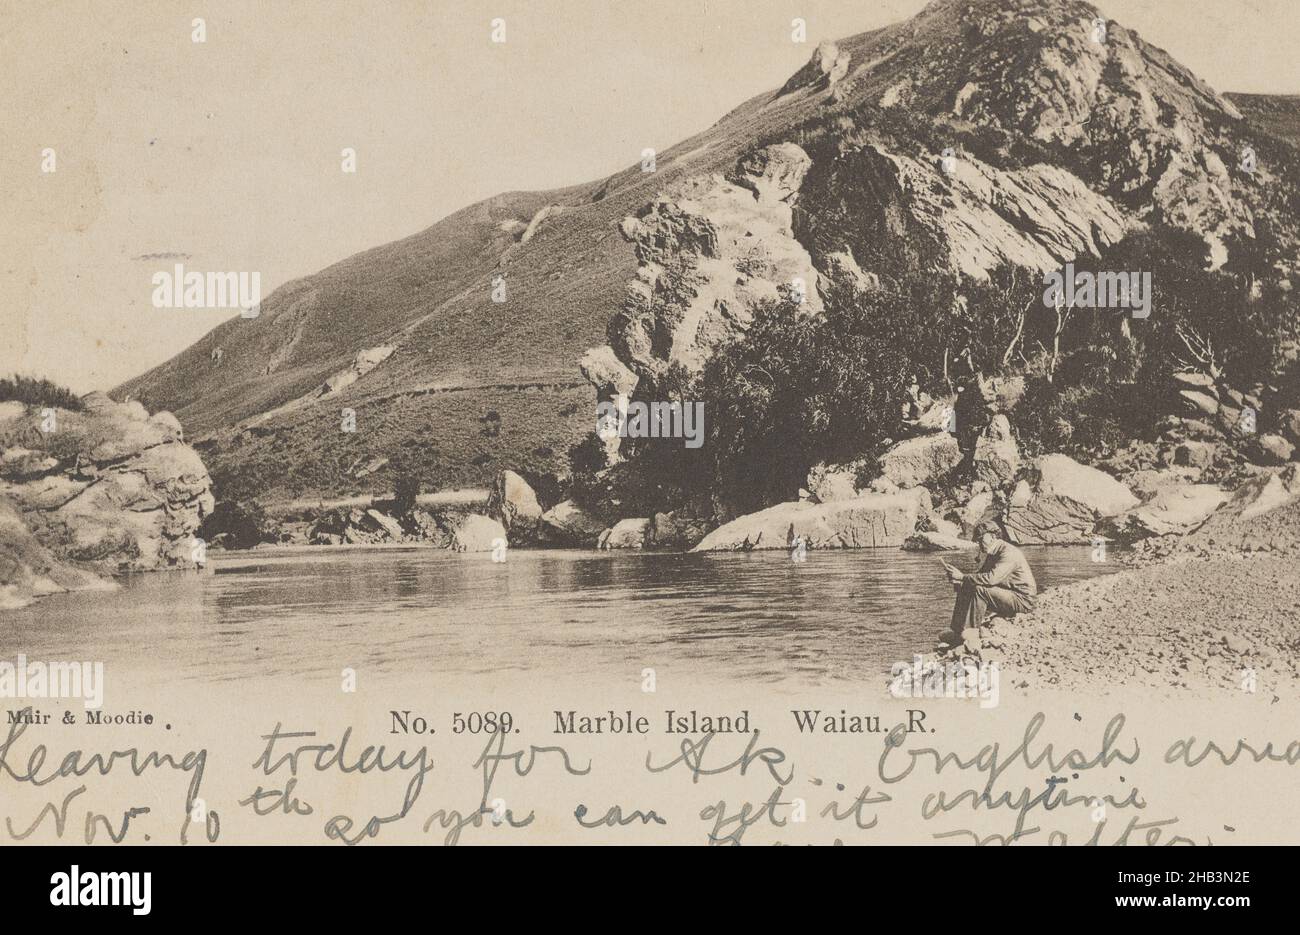 Muir & Moodie.
No. 5089. Marble Island. Waiau. R.
Leaving today for Ak. English
Nov. 10th so you can get it anytime
Walter.
alamy
Image ID: 2HB3N2E
www.alamy.com